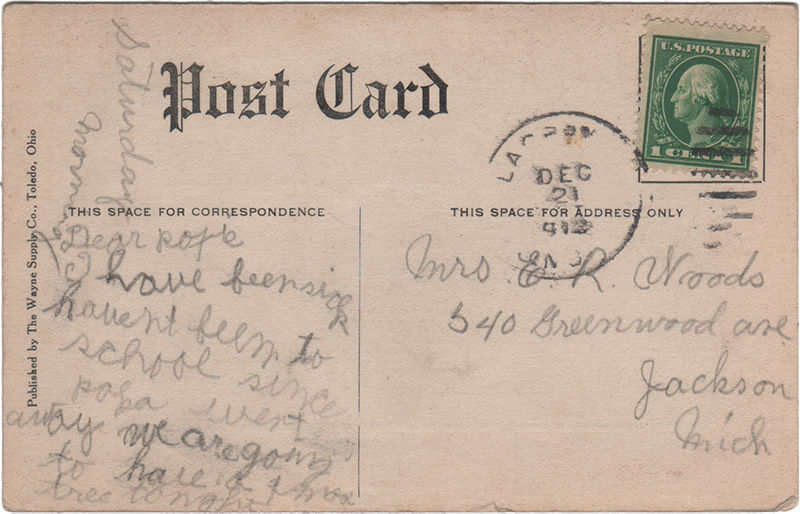 Saturday
morning
Post Card
U.S. POSTAGE
1 CENT 1
DEC
21
Published by The Wayne Supply Co., Toledo, Ohio
THIS SPACE FOR CORRESPONDENCE
THIS SPACE FOR ADDRESS ONLY
Dear
I have been sick
havent been to
school since
papa went
away we are going
to have a
tree tonight
Mrs. E. R. Woods
540 Greenwood ave
Jackson
Mich